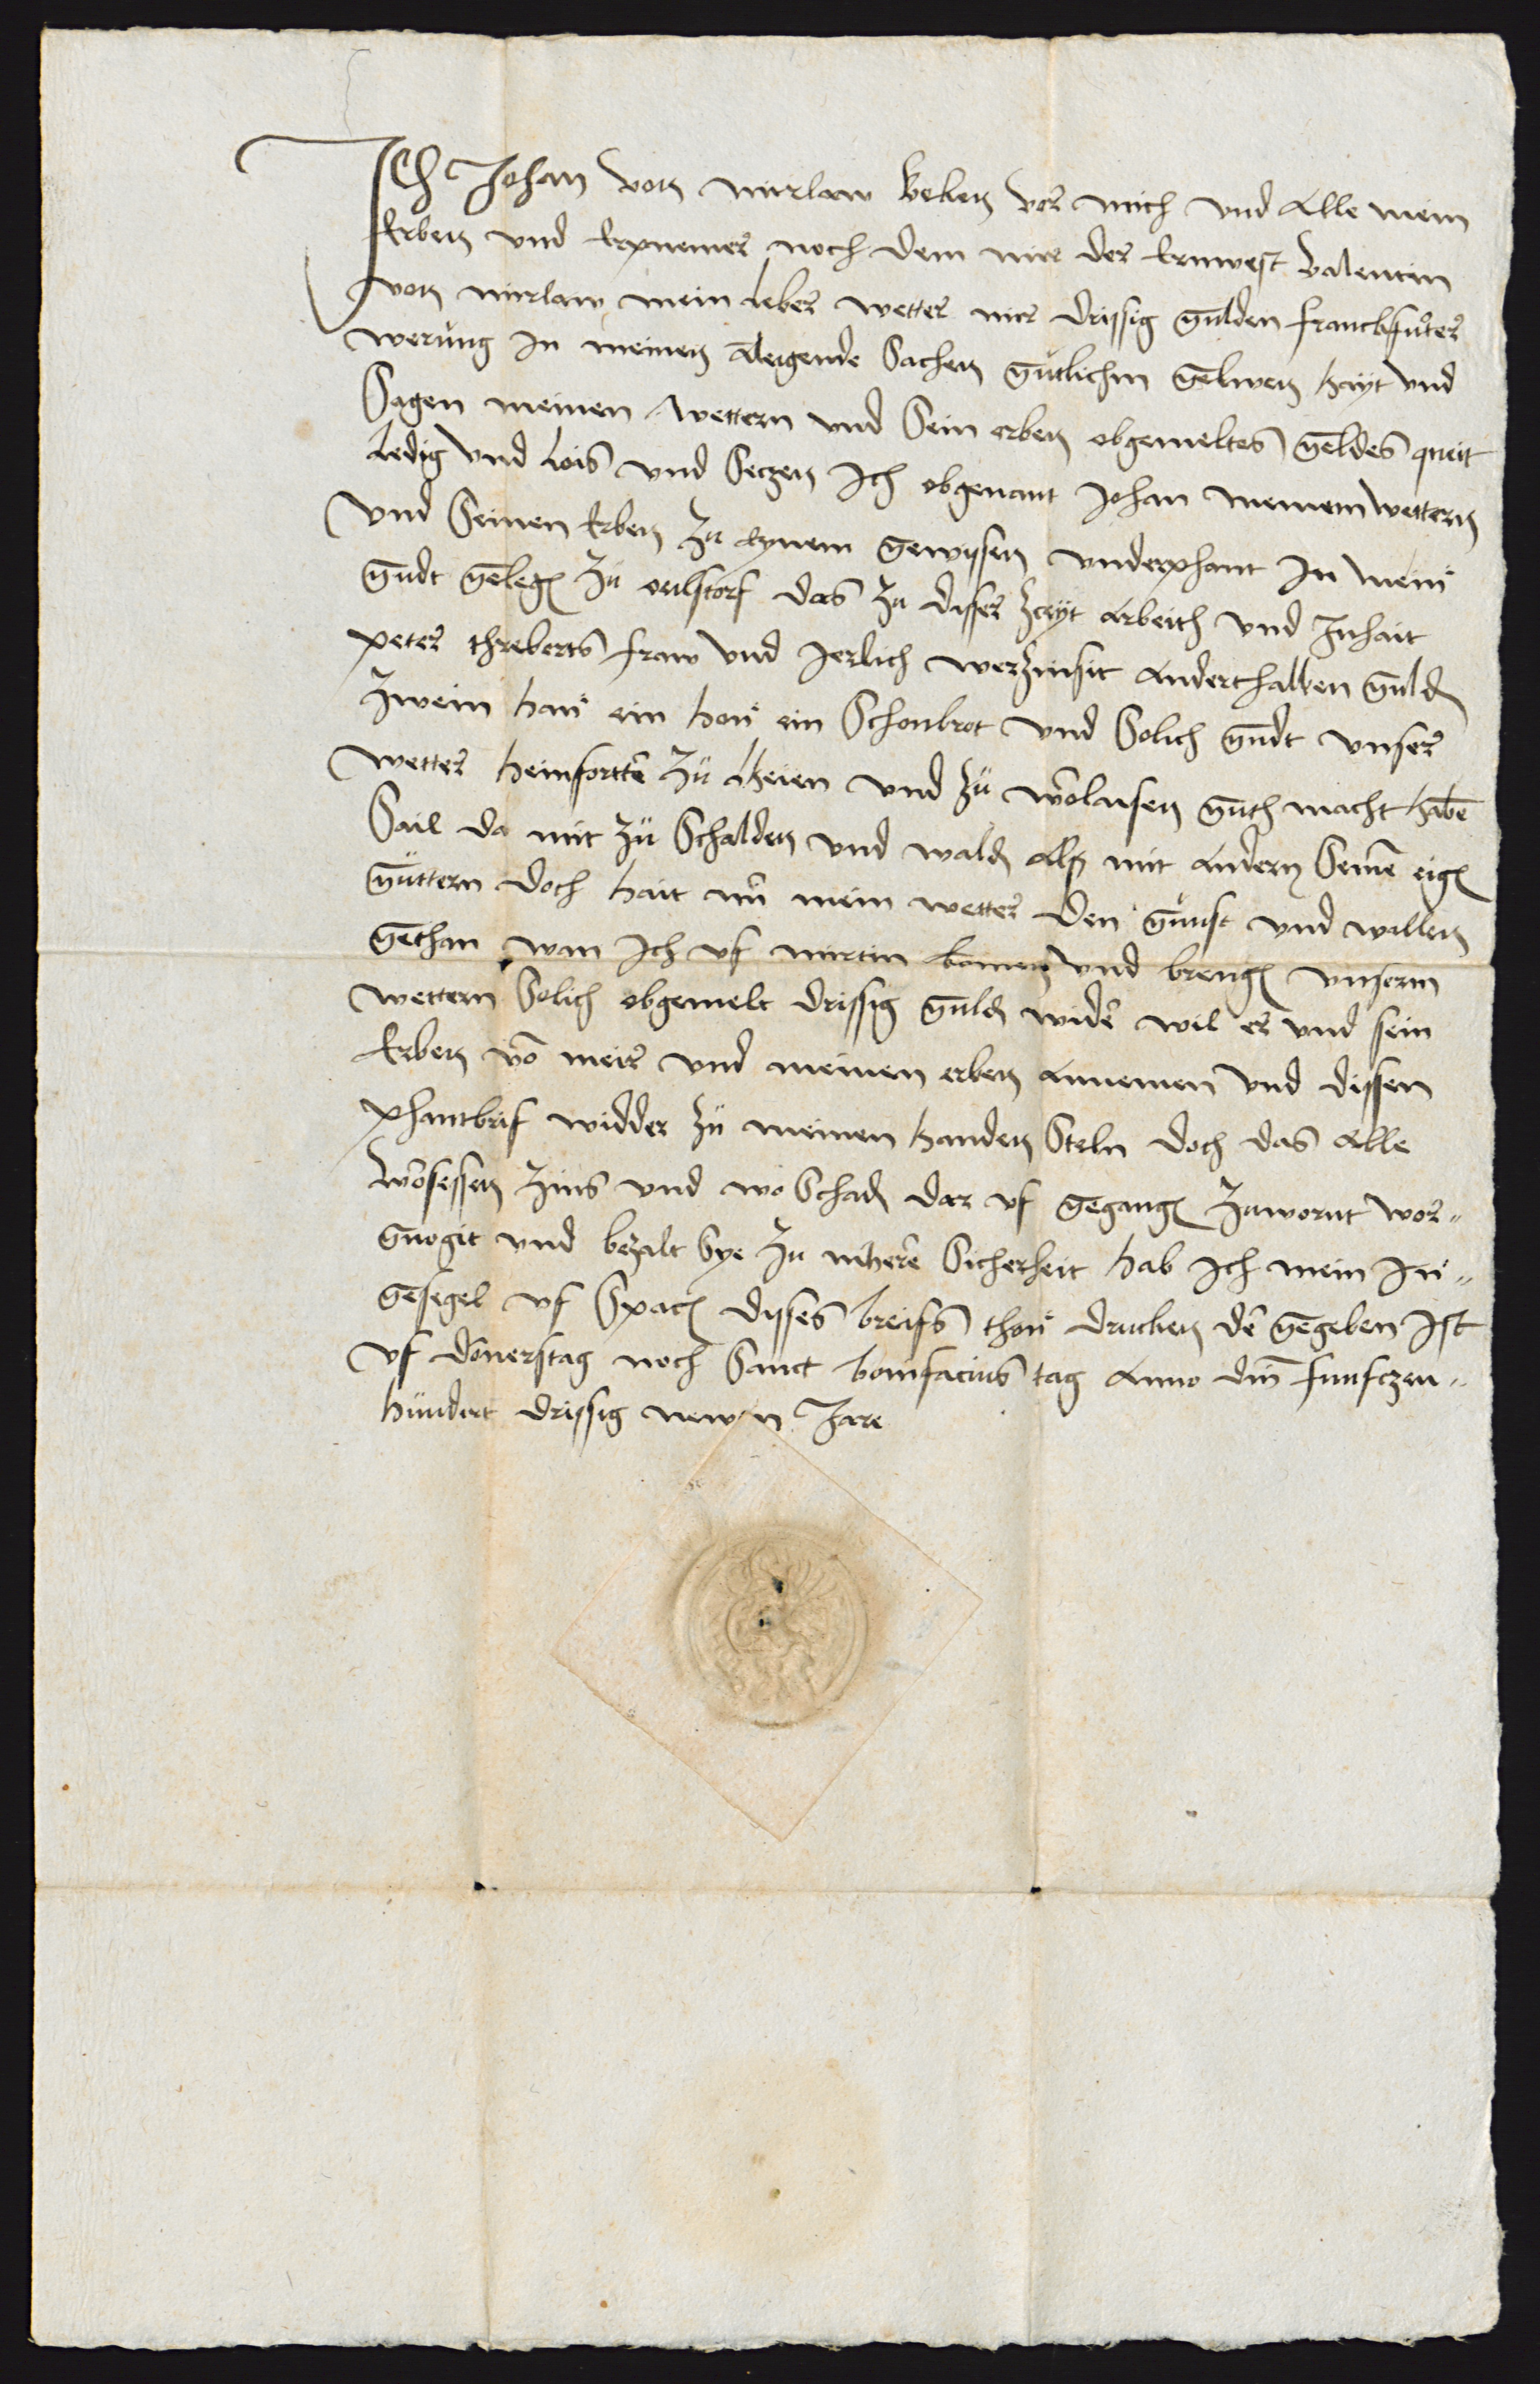 Ich Johan von mirlaw beken vor mich und alle mein
Erben und Erpnemer noch dem mir der Ernvest valentin
von mirlaw mein leber vetter mir drissig gulden franckfurter
werung in meinen aleigende sachen gutlichen gelwen hayt und
Sagen meinen vettern und sein erben obgemeltes geldes queit
ledig und lois und seczen ich obgenant Johan meinem vettern
und seinen Erben zu eynem gewissen underphant in mein
gudt geleg zu orlstorf das zu disser zeyt arbeith und inhait
peter threberts fraw und jerlich verzinsit anderthalben guld
zwein han ein hon ein schonbrot und solich gudt unser
vetter heinfortte zu leien und zu verlaisen guth macht habe
Sail da mit zu schalden und wald als mit andern seine eig
guttern doch hait un mein vetter den gunst und willen
gethan wan ich uf mirtin komen und breng unserm
vettern solich obgemelt drissig guld wide wil er und sein
Erben vo meir und meinen erben annemen und dissen
phantbrif widder zu meinen handen steln doch das alle
versessen zins und wo schad dar uf gegang zuvornt vor„
gnogit und bezalt sye zu mhere sicherheit hab ich mein in„
gesegel uf spaci disses breifs thon drucken de gegeben ist
uf donerstag noch sanct bonifacius tag anno dm funfczen„
hundert drissig newn Jare